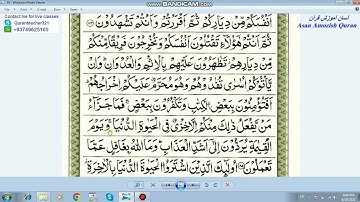 10 - Windows Photo Viewer
WWW.BANDICAM.COM
Contact me for live classes
Quranteacher321
+93749625105
آسان آموزش قرآن
Asan Amozish Quran
اَنْفُسَكُمْ مِّنْ دِيَارِكُمْ ثُمَّ اَقْرَرْتُمْ وَاَنْتُمْ تَشْهَدُوْنَ
ثُمَّ اَنْتُمْ هٰٓؤُلَآءِ تَقْتُلُوْنَ اَنْفُسَكُمْ وَتُخْرِجُوْنَ فَرِيْقًا مِّنْكُمْ
مِّنْ دِيَارِهِمْ تَظٰهَرُوْنَ عَلَيْهِمْ بِالْاِثْمِ وَالْعُدْوَانِ وَاِنْ
يَّاْتُوْكُمْ اُسٰرٰى تُفٰدُوْهُمْ وَهُوَ مُحَرَّمٌ عَلَيْكُمْ اِخْرَاجُهُمْ
اَفَتُؤْمِنُوْنَ بِبَعْضِ الْكِتٰبِ وَتَكْفُرُوْنَ بِبَعْضٍ فَمَا جَزَآءُ
مَنْ يَّفْعَلُ ذٰلِكَ مِنْكُمْ اِلَّا خِزْيٌ فِى الْحَيٰوةِ الدُّنْيَا وَيَوْمَ
الْقِيٰمَةِ يُرَدُّوْنَ اِلٰٓى اَشَدِّ الْعَذَابِ وَمَا اللّٰهُ بِغَافِلٍ عَمَّا
تَعْمَلُوْنَ اُولٰٓئِكَ الَّذِيْنَ اشْتَرَوُا الْحَيٰوةَ الدُّنْيَا بِالْاٰخِرَةِ